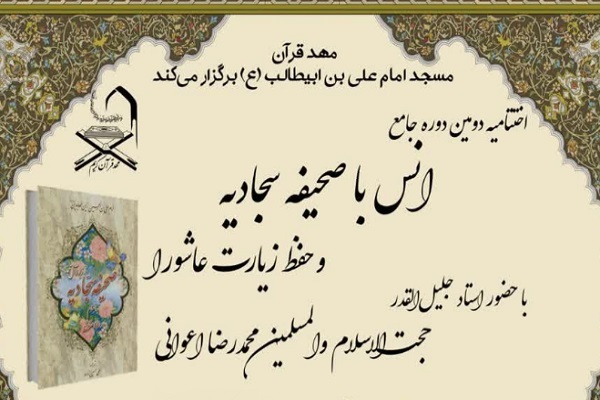 مهد قرآن
مسجد امام علی بن ابیطالب (ع) برگزار می‌کند
اختتامیه دومین دوره جامع
انس با صحیفه سجادیه
و حفظ زیارت عاشورا
با حضور استاد جلیل القدر
حجت الاسلام والمسلمین محمدرضا اعوانی
مهد قرآن کریم
صحیفه سجادیه